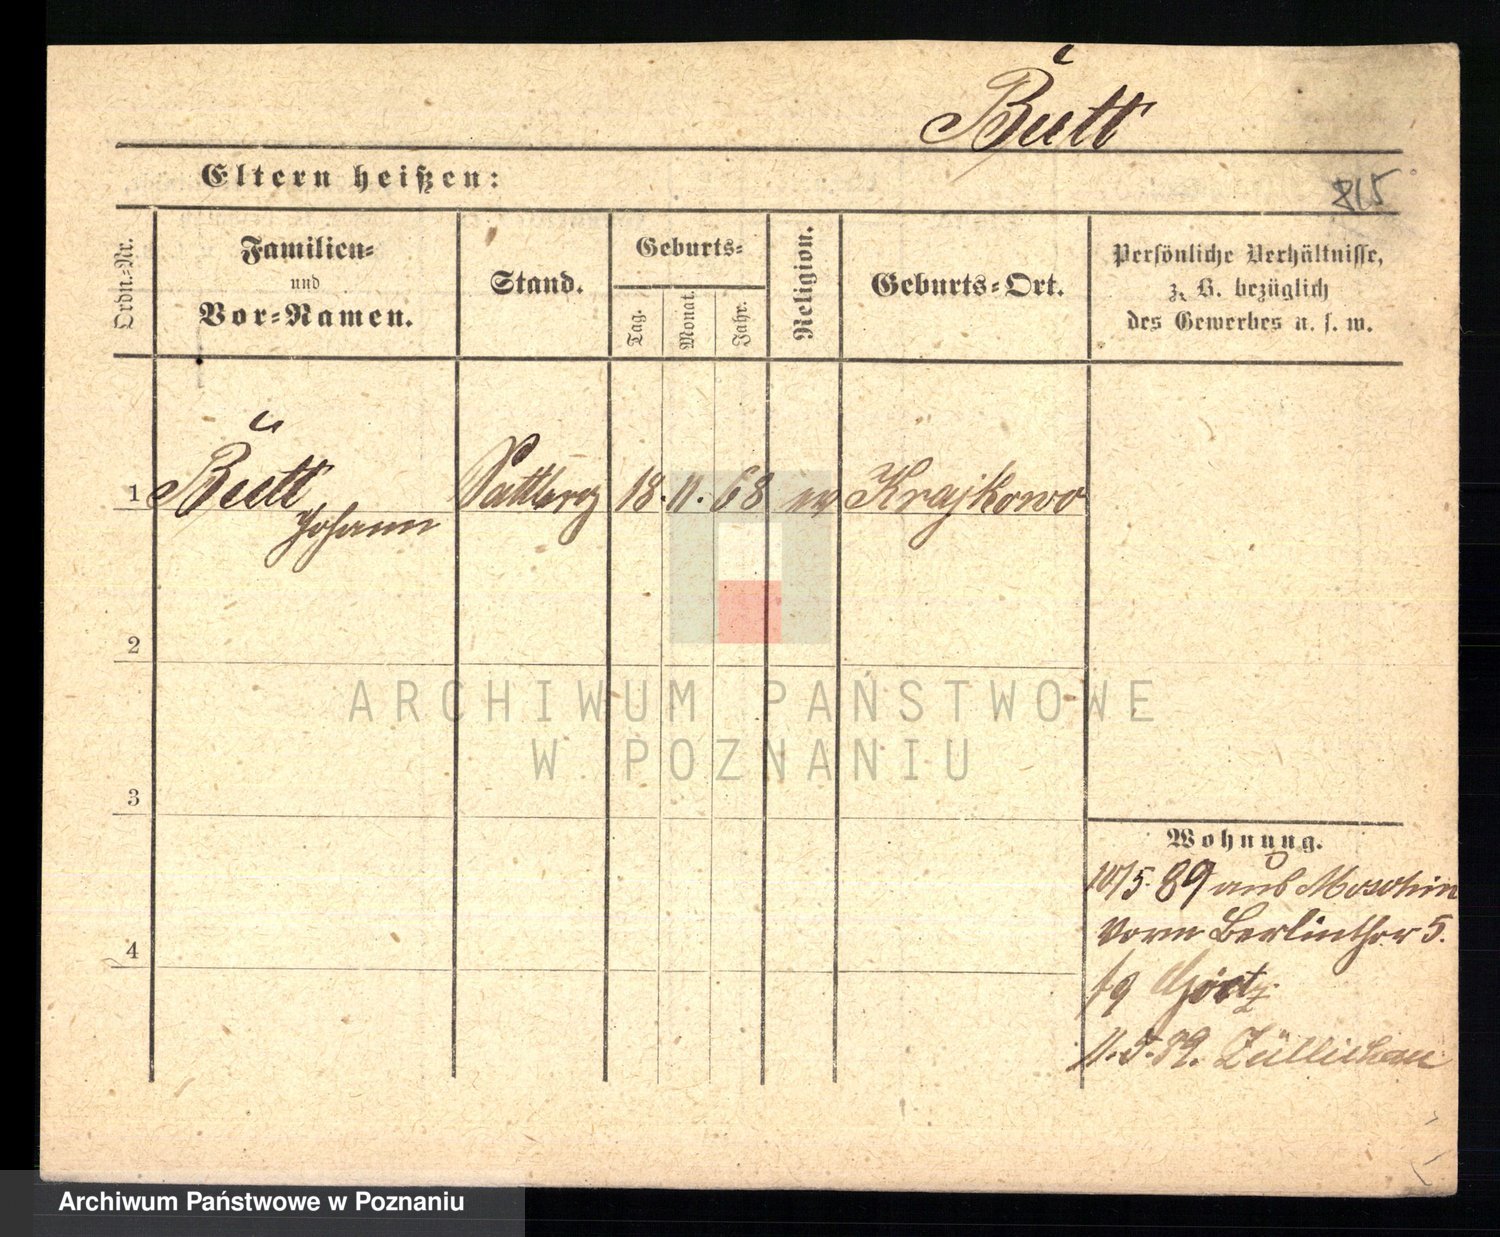 Bütt
Eltern heißen:
815
Ordn.=Nr.
Familien=
und
Vor=Namen.
Stand.
Geburts=
Tag.
Monat.
Jahr.
Religion.
Geburts=Ort.
Persönliche Verhältnisse,
z. B. bezüglich
des Gewerbes u. s. w.
1 Bütt Johann Sattlerg 18. 11. 68 ev Krajkowo
2
3
4
Wohnung.
10/5 89 aus Moschin
Vorm Berlinthor 5.
11. 5. 89. Züllichau
ARCHIWUM PAŃSTWOWE
W POZNANIU
Archiwum Państwowe w Poznaniu